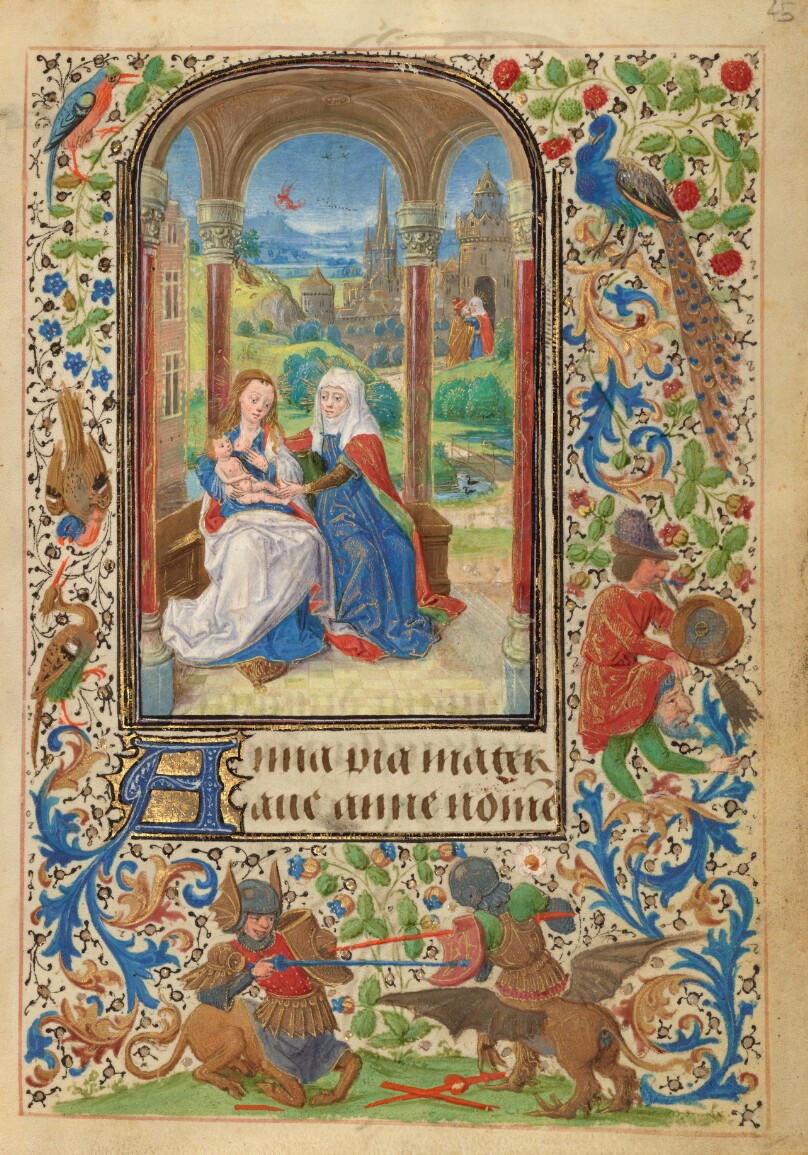 45
Anna pia mater
aue anne nom̄e